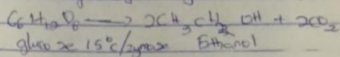 C6H12O6 → 2CH3CH2OH + 2CO2
glucose 15°c/zymase Ethanol